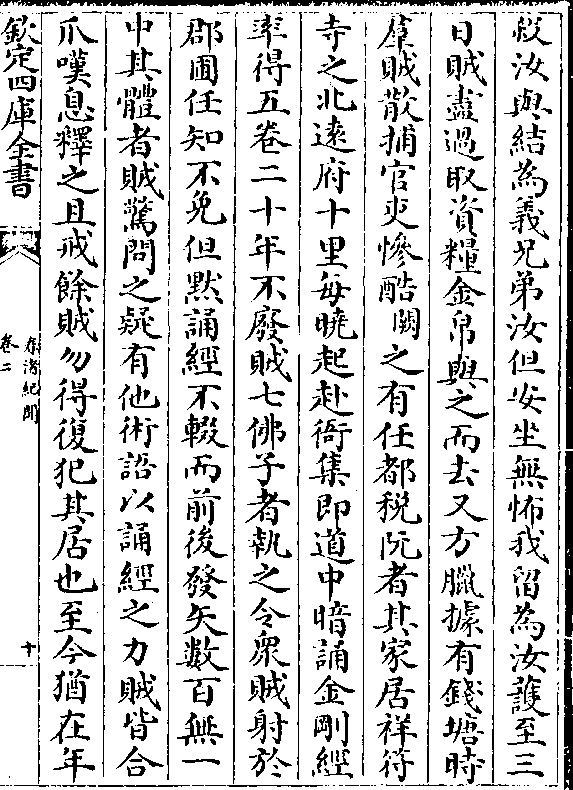 殺汝與結為義兄弟汝但安坐無怖我留為汝護至三
日賊盡過取資糧金帛與之而去又方臘據有錢塘時
羣賊散捕官吏慘酷闕之有任都税阮者其家居祥符
寺之北逺府十里每曉起赴衙集即道中暗誦金剛經
率得五卷二十年不廢賊七佛子者執之令衆賊射於
郡圃任知不免但黙誦經不輟而前後發矢數百無一
中其體者賊驚問之疑有他術語以誦經之力賊皆合
爪嘆息釋之且戒餘賊勿得復犯其居也至今猶在年
欽定四庫全書
春渚紀聞
卷二
十